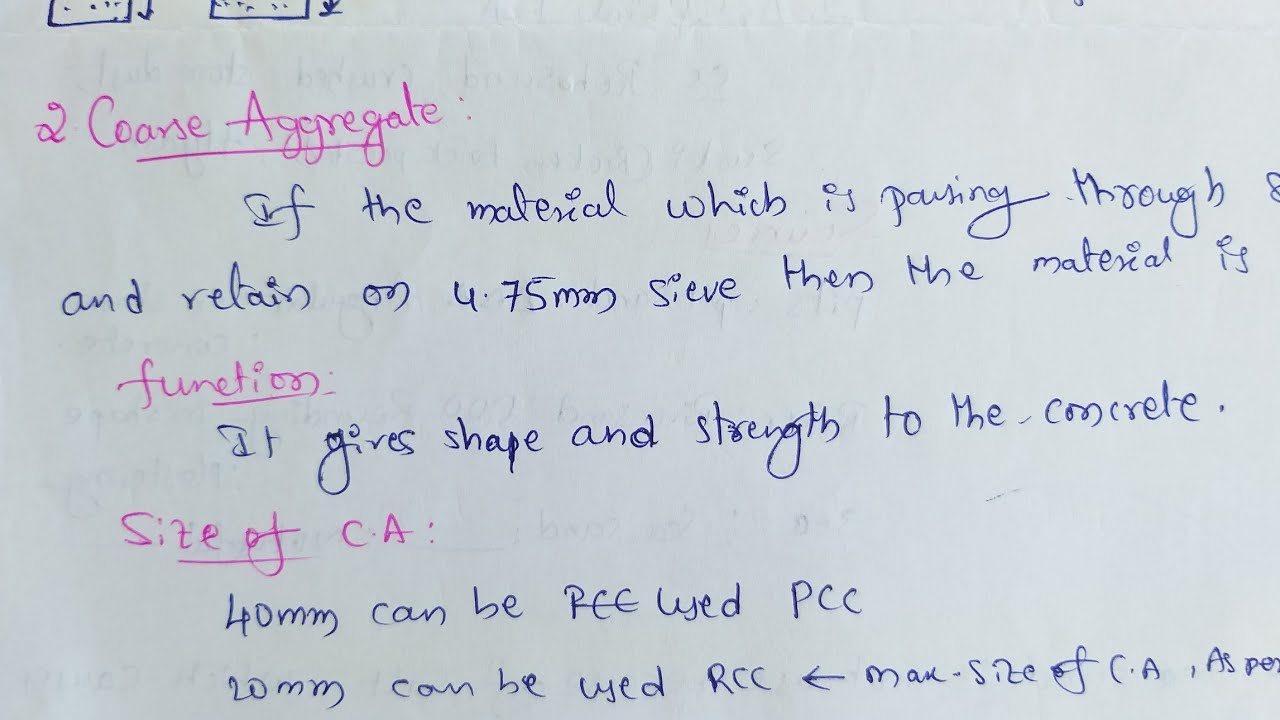 2. Coarse Aggregate:
If the material which is passing through
and retain on 4.75mm sieve then the material is
function:
It gives shape and strength to the concrete.
Size of C.A:
40mm can be PCC used PCC
20mm can be used RCC ← max. size of C.A, As per